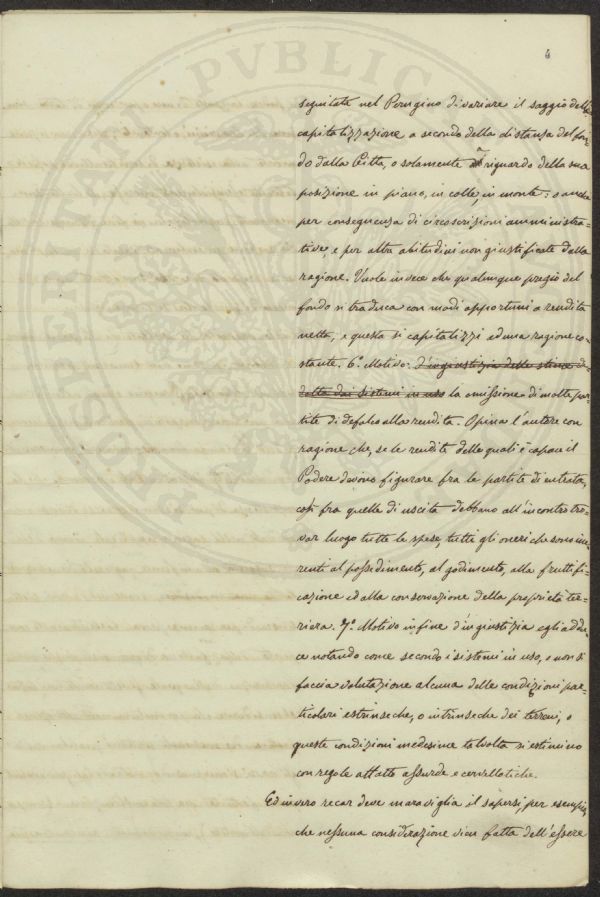 4
seguitata nel Perugino di variare il saggio della
capitalizzazione a secondo della distanza del fon-
do dalla Città, o solamente a riguardo della sua
posizione in piano, in colle, in monte: o anche
per conseguenza di circoscrizioni amministra-
tive, e per altre abitudini non giustificate dalla
ragione. Vuole invece che qualunque pregio del
fondo si traduca con modi opportuni a rendita
netta, e questa si capitalizzi ad una ragione co-
stante. 6.° Motivo: d'ingiustizia delle stime de-
dotta dai sistemi in uso la omissione di molte par-
tite di defalco alla rendita. Opina l'autore con
ragione che, se le rendite delle quali è capace il
Podere devono figurare fra le partite di entrata,
così fra quelle di uscita debbano all'incontro tro-
var luogo tutte le spese, tutti gli oneri che sono ine-
renti al possedimento, al godimento, alla fruttifi-
cazione ed alla conservazione della proprietà ter-
riera. 7.° Motivo infine d'ingiustizia egli addu-
ce notando come secondo i sistemi in uso, o non si
faccia valutazione alcuna delle condizioni par-
ticolari estrinseche, o intrinseche dei terreni, o
queste condizioni medesime talvolta si estimino
con regole affatto assurde e cervellotiche.
Ed invero recar deve maraviglia il sapersi, per esempio,
che nessuna considerazione vien fatta dell'essere
PROSPERITATI PVBLICAE